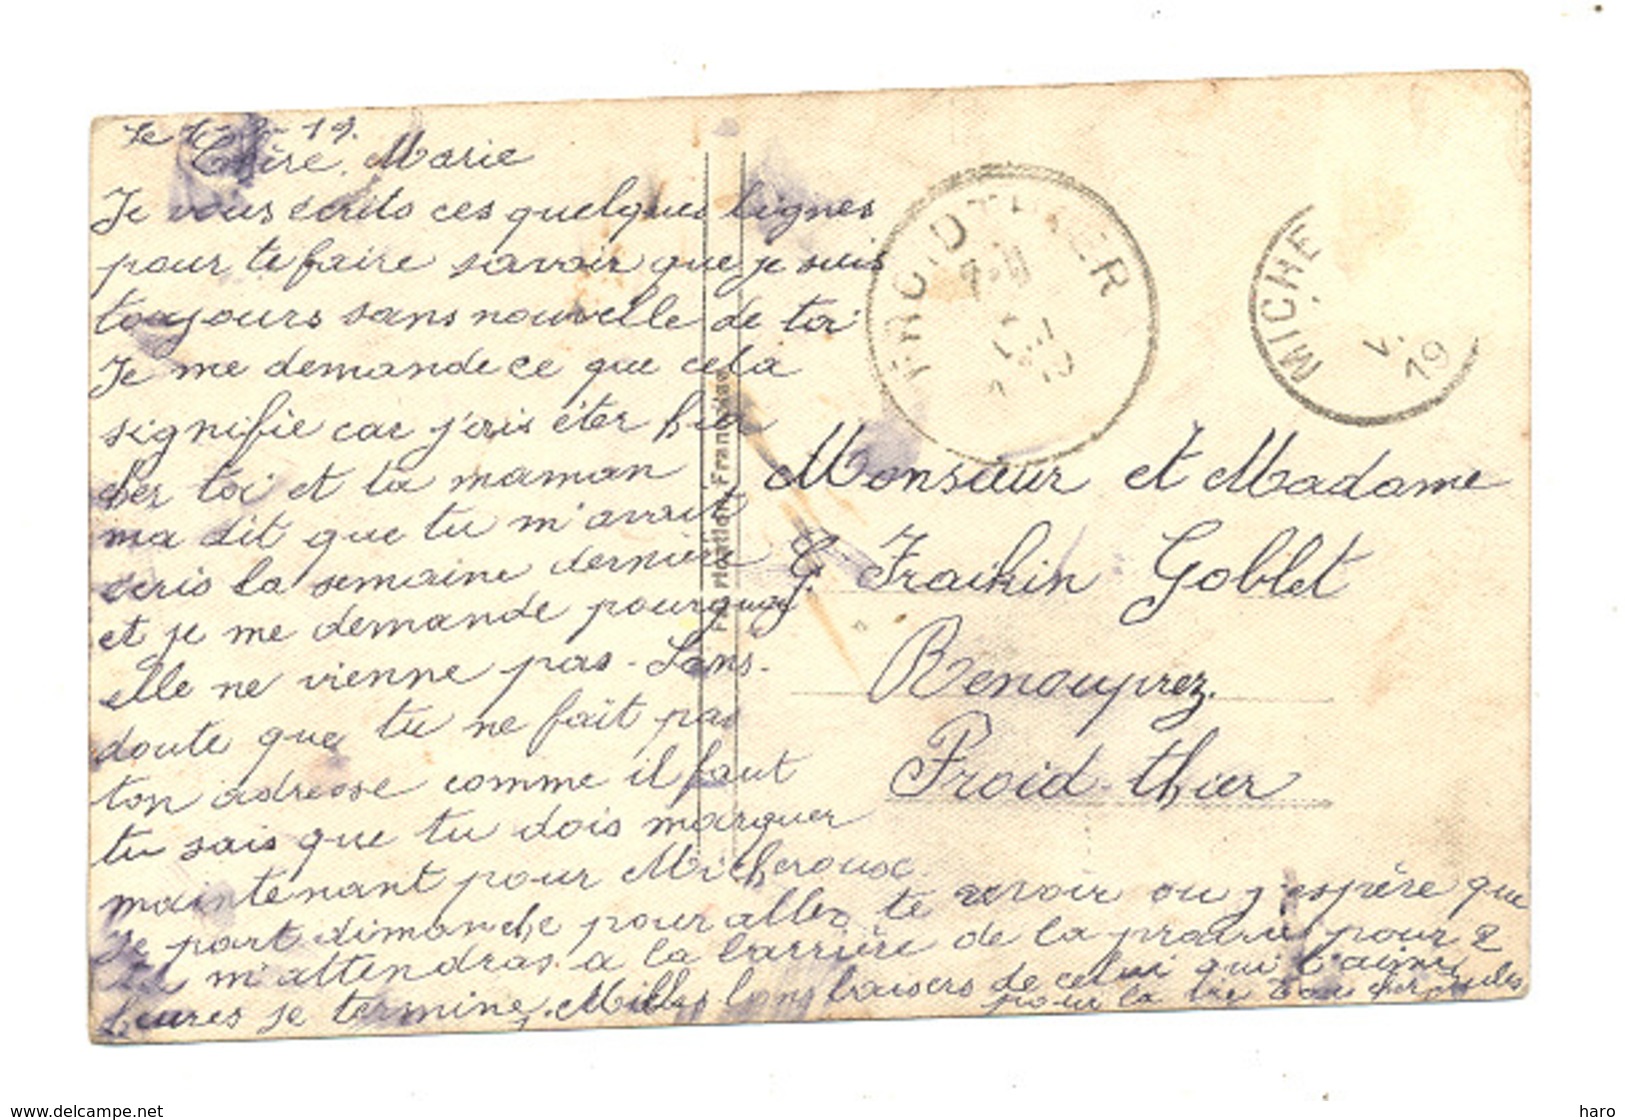 Le 19.
Chère Marie
Je vous écrits ces quelques lignes
pour te faire savoir que je suis
toujours sans nouvelle de toi
Je me demande ce que cela
signifie car j'eris éter hier
cher toi et ta maman
ma dit que tu m'avait
ecris la semaine dernière
et je me demande pourquoy
elle ne vienne pas - Sans -
doute que tu ne fait pas
ton adresse comme il faut
tu sais que tu dois marquer
maintenant pour Micheroux.
Je part dimanche pour aller te revoir ou j'espère que
tu m'attendras a la barrière de la prairie pour 2
heures je termine. Mille bons baisers de celui qui t'aime
pour la vie ton
Fabrication Française
FROIDTHIER
MICHE
V.
19
Monsieur et Madame
G. Fraikin Goblet
Renouprez.
Froid-thier
www.delcampe.net
haro